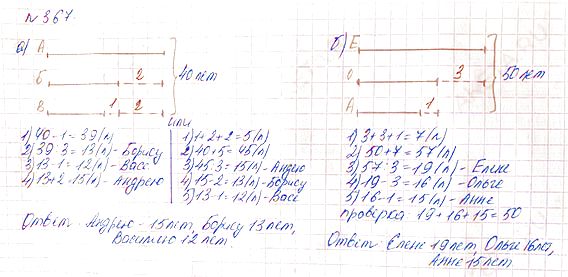 №367.
а) А
Б 2 40 лет
В 1 2
1) 40-1=39(л)
2) 39:3=13(л)-Борису
3) 13-1=12(л)-Васе
4) 13+2=15(л)-Андрею
или
1) 1+2+2=5(л)
2) 40+5=45(л)
3) 45:3=15(л)-Андрею
4) 15-2=13(л)-Борису
5) 13-1=12(л)-Васе
Ответ: Андрею - 15 лет, Борису 13 лет,
Василию 12 лет.
б) Е
О 3 50 лет
А 1
1) 3+3+1=7(л)
2) 50+7=57(л)
3) 57:3=19(л)-Елене
4) 19-3=16(л)-Ольге
5) 16-1=15(л)-Анне
Проверка: 19+16+15=50
Ответ: Елене 19 лет, Ольге 16 лет,
Анне 15 лет.